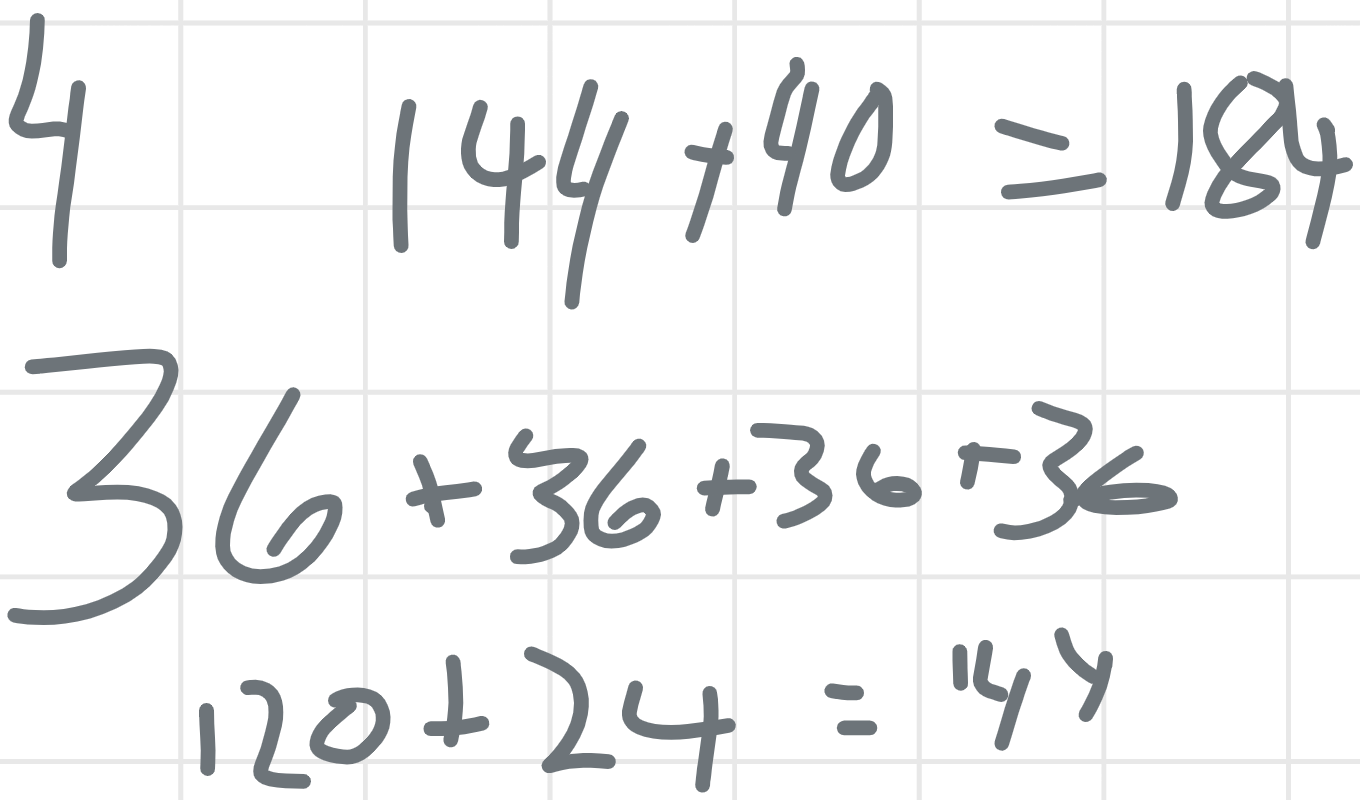 4 144 + 40 = 184
36 + 36 + 36 + 36
120 + 24 = 144